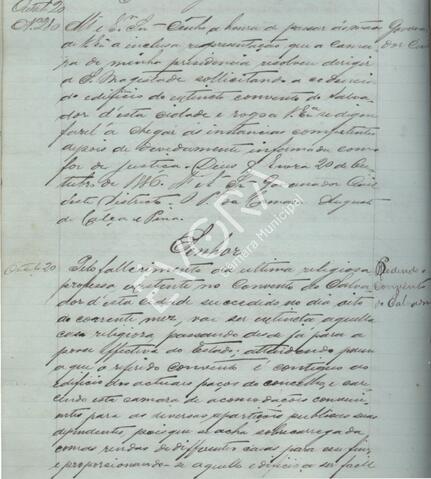 Outubº 20
Nº 210 Illmo e Exmo Sr. - Tenho a honra de passar ás mãos Governa
de V. Exa a inclusa representação que a Cama- dor Civil
ra de minha presidencia resolveu dirigir
a S. Magestade sollicitando a cedencia
do edificio do extincto convento do Salva-
dor d'esta cidade e rogo a V. Exa se digne
fazel-a chegar ás instancias competentes
depois de devidamente informada como
for de justiça. Deus Gde Evora 20 de Ou-
tubro de 1886. Illmo e Exmo Sr. Governador Civil
deste Districto. O P. da Camara, Augusto
de Calça e Pina.
Senhor
Outubº 20 Pelo fallecimento da ultima religiosa Pedindo o
professa existente no Convento do Salva- Convento
dor d'esta cidade succedido no dia oito do Salvador
do corrente mez, vai ser extincta aquella
casa religiosa passando desde já para a
posse effectiva do Estado; attendendo porem
a que o referido convento é contiguo ao
edificio dos actuaes paços do concelho e care-
cendo esta camara de acomodações convenien-
tes para as diversas repartições publicas suas
dependentes, pois que se acha sobrecarregada
com as rendas de differentes casas para seu fim,
e proporcionando-se aquelle edificio a ser facil
EVORA
Câmara Municipal